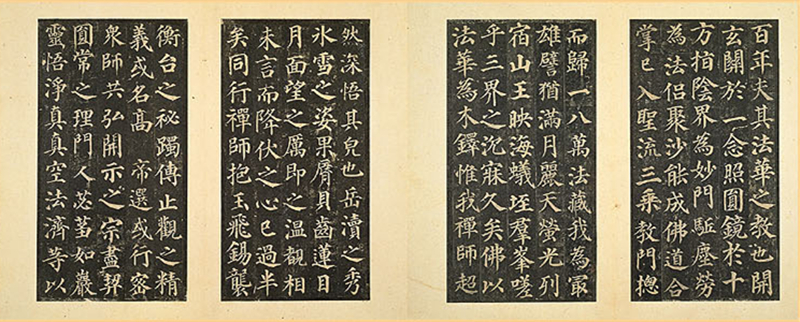 百年夫其法華之教也開
玄關於一念照圓鏡於十
方指陰界為妙門駈塵勞
為法侶聚沙能成佛道合
掌已入聖流三乘教門揔
而歸一八萬法藏我為冣
雄譬猶滿月麗天螢光列
宿山王映海蟻垤羣峯嗟
乎三界之沉寐久矣佛以
法華為木鐸惟我禪師超
然深悟其皃也岳瀆之秀
氷雪之姿果脣貝齒蓮目
月面望之厲即之温覩相
未言而降伏之心已過半
矣同行禪師抱玉飛錫襲
衡台之祕躅傳止觀之精
義或名高 帝選或行密
衆師共弘開示之宗盡契
圓常之理門人苾蒭如巖
靈悟淨真真空法濟等以